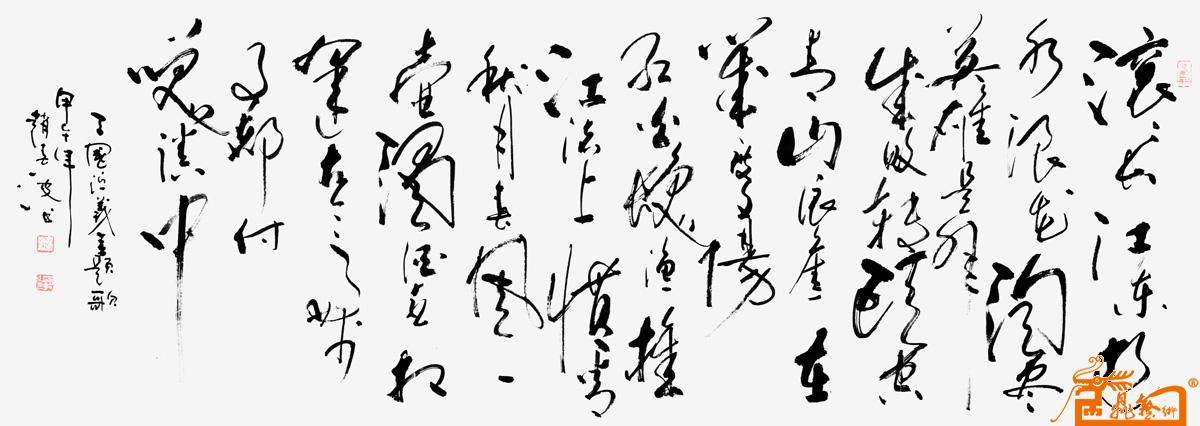 滚滚长江东逝
水浪花淘尽
英雄是非
成败转頭空
青山依旧在
幾度夕陽
红白髮渔樵
江渚上惯看
秋月春风一
壶濁酒喜相
逢古今多少
事都付
笑谈中
三國演義主題歌
甲午年
趙
书